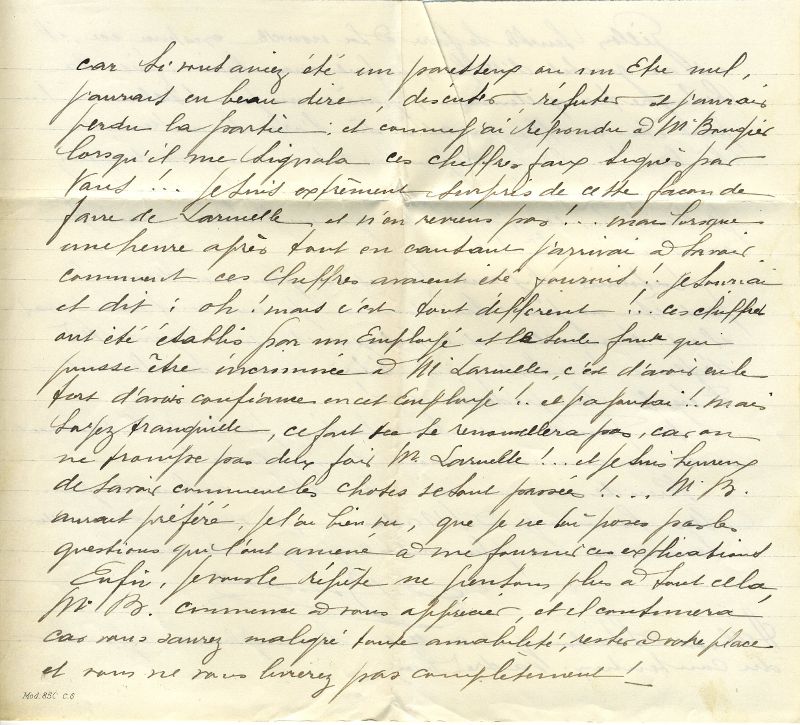 car si vous aviez été un paresseux ou un Etre nul,
j'aurais eu beau dire, discuter, réfuter et j'aurais
perdu la partie ; et comme j'ai répondu à Mr Baugier
lorsqu'il me signala ces chiffres faux signés par
vous !... je suis extrêment surpris de cette façon de
faire de Laruelle, et n'en reviens pas !... mais lorsque
une heure après tout en causant j'arrivai à savoir
comment ces chiffres avaient été fournis ! je souriai
et dit : oh ! mais c'est tout différent !... ces chiffres
ont été établis par un Employé et la seule faute qui
puisse être incriminée à Mr Laruelle, c'est d'avoir eu le
tort d'avoir confiance en cet Employé !.. et j'ajoutai !.. mais
soyez tranquille, ce fait se renouvellera pas, car on
ne trompe pas deux fois Mr Laruelle !... et je suis heureux
de savoir comment les choses se sont passées !.... Mr B.
aurait préféré, je l'ai bien vu, que je ne lui poses pas les
questions qui l'ont amené à me fournir ces explications
Enfin, je vous le répète ne pensons plus à tout cela,
Mr B. commence à vous apprécier, et il continuera
car vous saurez malgré toute amabilité, rester à votre place
et vous ne vous livrerez pas complètement !
Mod. 83C C.6